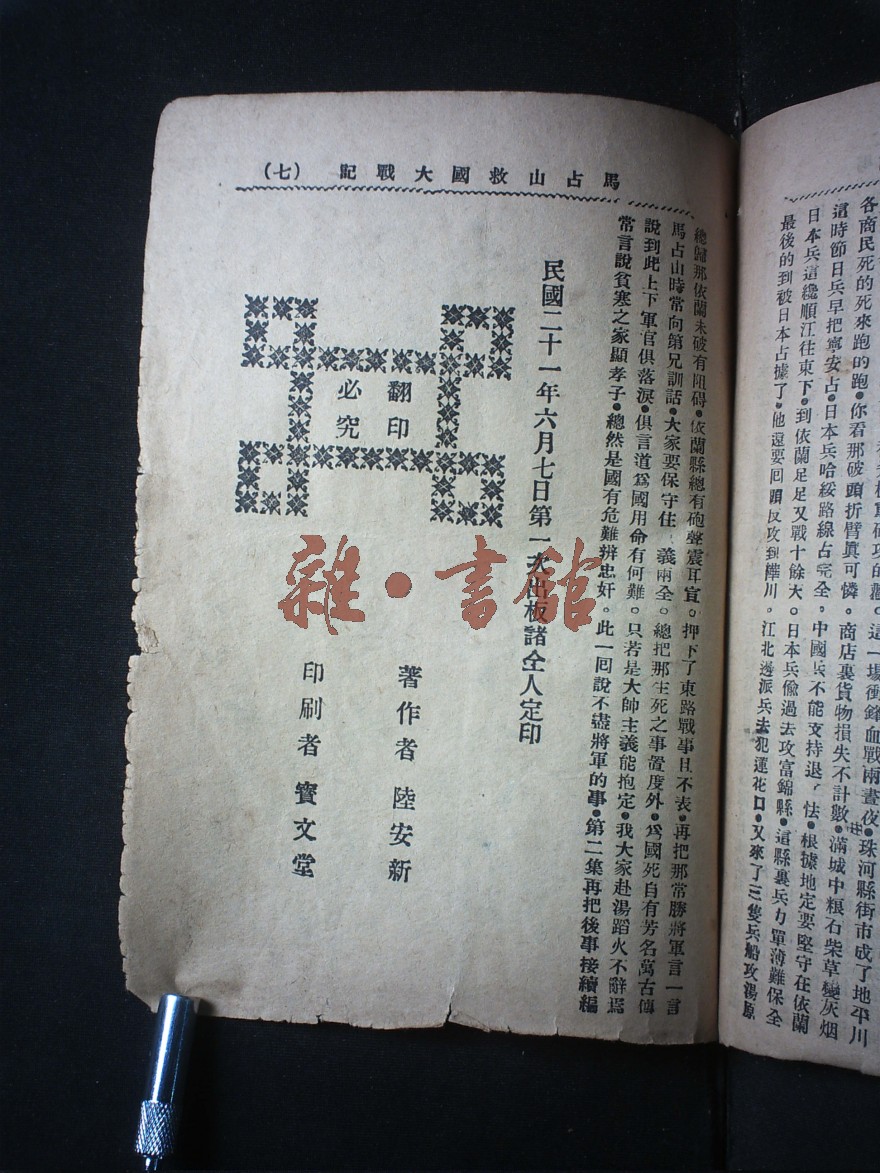 各商民死的死來跑的跑●你看那破頭折臂眞可憐●商店裏貨物損失不計數●滿城中粮石柴草變灰烟
這時節日兵早把寧安占●日本兵哈綏路線占完全●中國兵不能支持退
怯●根據地定要堅守在依蘭
日本兵這纔順江往東下●到依蘭足足又戰十餘天●日本兵偸過去攻富錦縣●這縣裏兵力單薄難保全
最後的到被日本占據了●他還要回頭反攻到樺川●江北邊派兵去犯蓮花口●又來了三隻兵船攻湯原
馬占山救國大戰記 (七)
總歸那依蘭未破有阻碍●依蘭縣總有砲聲震耳宣●押下了東路戰事且不表●再把那常勝將軍言一言
馬占山時常向第兄訓話●大家要保守住
義兩全●總把那生死之事置度外●爲國死自有芳名萬古傳
說到此上下軍官俱落淚●俱言道爲國用命有何難●只若是大帥主義能抱定●我大家赴湯蹈火不辭焉
常言說貧寒之家顯孝子●總然是國有危難辨忠奸●此一回說不盡將軍的事●第二集再把後事接續編
民國二十一年六月七日第一次出板諸仝人定印
翻印
必究
著作者 陸安新
印刷者 寶文堂
雜·書館